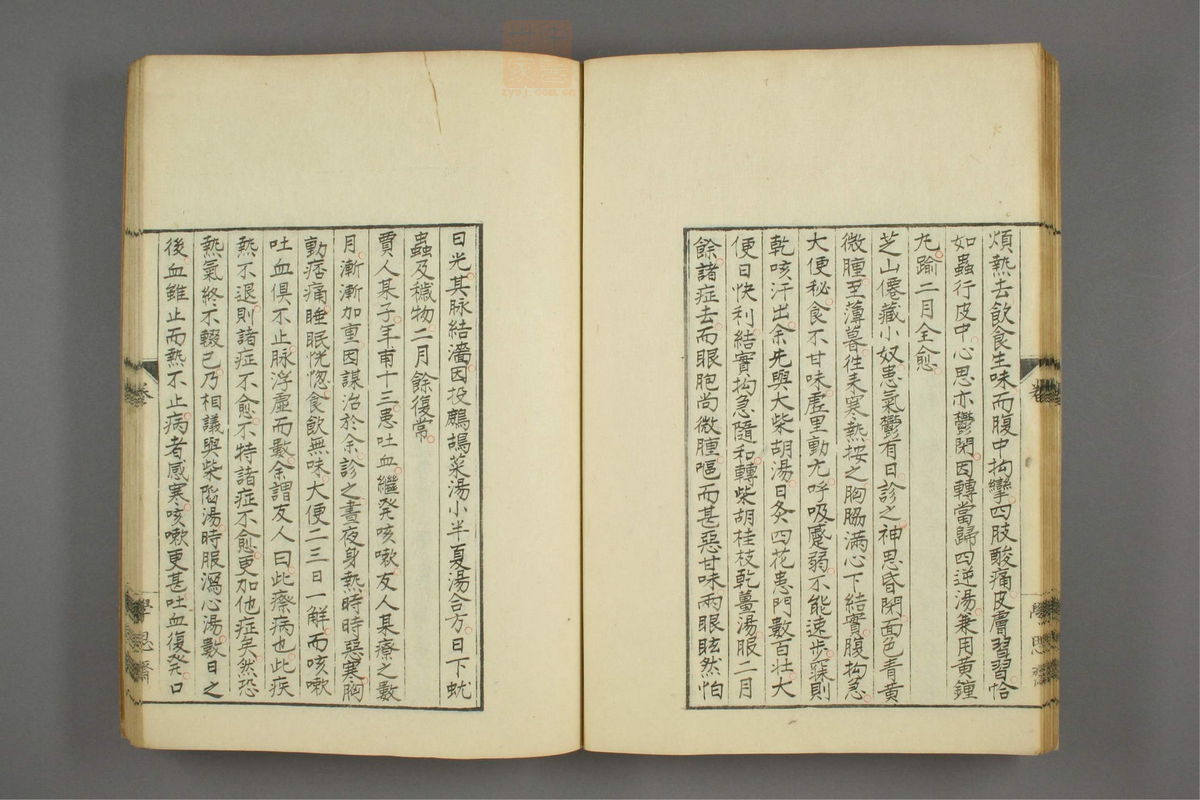 煩熱去飲食生味而腹中拘攣四肢酸痛皮膚習習恰
如蟲行皮中心思亦鬱閉因轉當歸四逆湯兼用黃鐘
丸踰二月全愈
芝山僊藏小奴患氣鬱有日診之神思昏閉面色青黃
微腫至薄暮往来寒熱按之胸脇滿心下結實腹拘急
大便秘食不甘味虛里動尤呼吸蹙弱不能速步窾則
乾咳汗出余先與大柴胡湯日灸四花患門數百壯大
便日快利結實拘急隨和轉柴胡桂枝乾薑湯服二月
餘諸症去而眼胞尚微腫嘔而甚惡甘味兩眼眩然怕
日光其脉結濇因投鷓鴣菜湯小半夏湯合方日下蚘
蟲及穢物二月餘復常
賈人某子年甫十三患吐血繼発咳嗽友人某療之數
月漸漸加重因謀治於余診之晝夜身熱時時惡寒胸
動痞痛睡眠恍惚食飲無味大便二三日一解而咳嗽
吐血俱不止脉浮虛而數余謂友人曰此瘵病也此疾
熱不退則諸症不愈不特諸症不愈更加他症矣然恐
熱氣終不輟已乃相議與柴陷湯時服瀉心湯數日之
後血雖止而熱不止病者感寒咳嗽更甚吐血復発口
卷
學思齋
卷
學思齋
zysj.com.cn